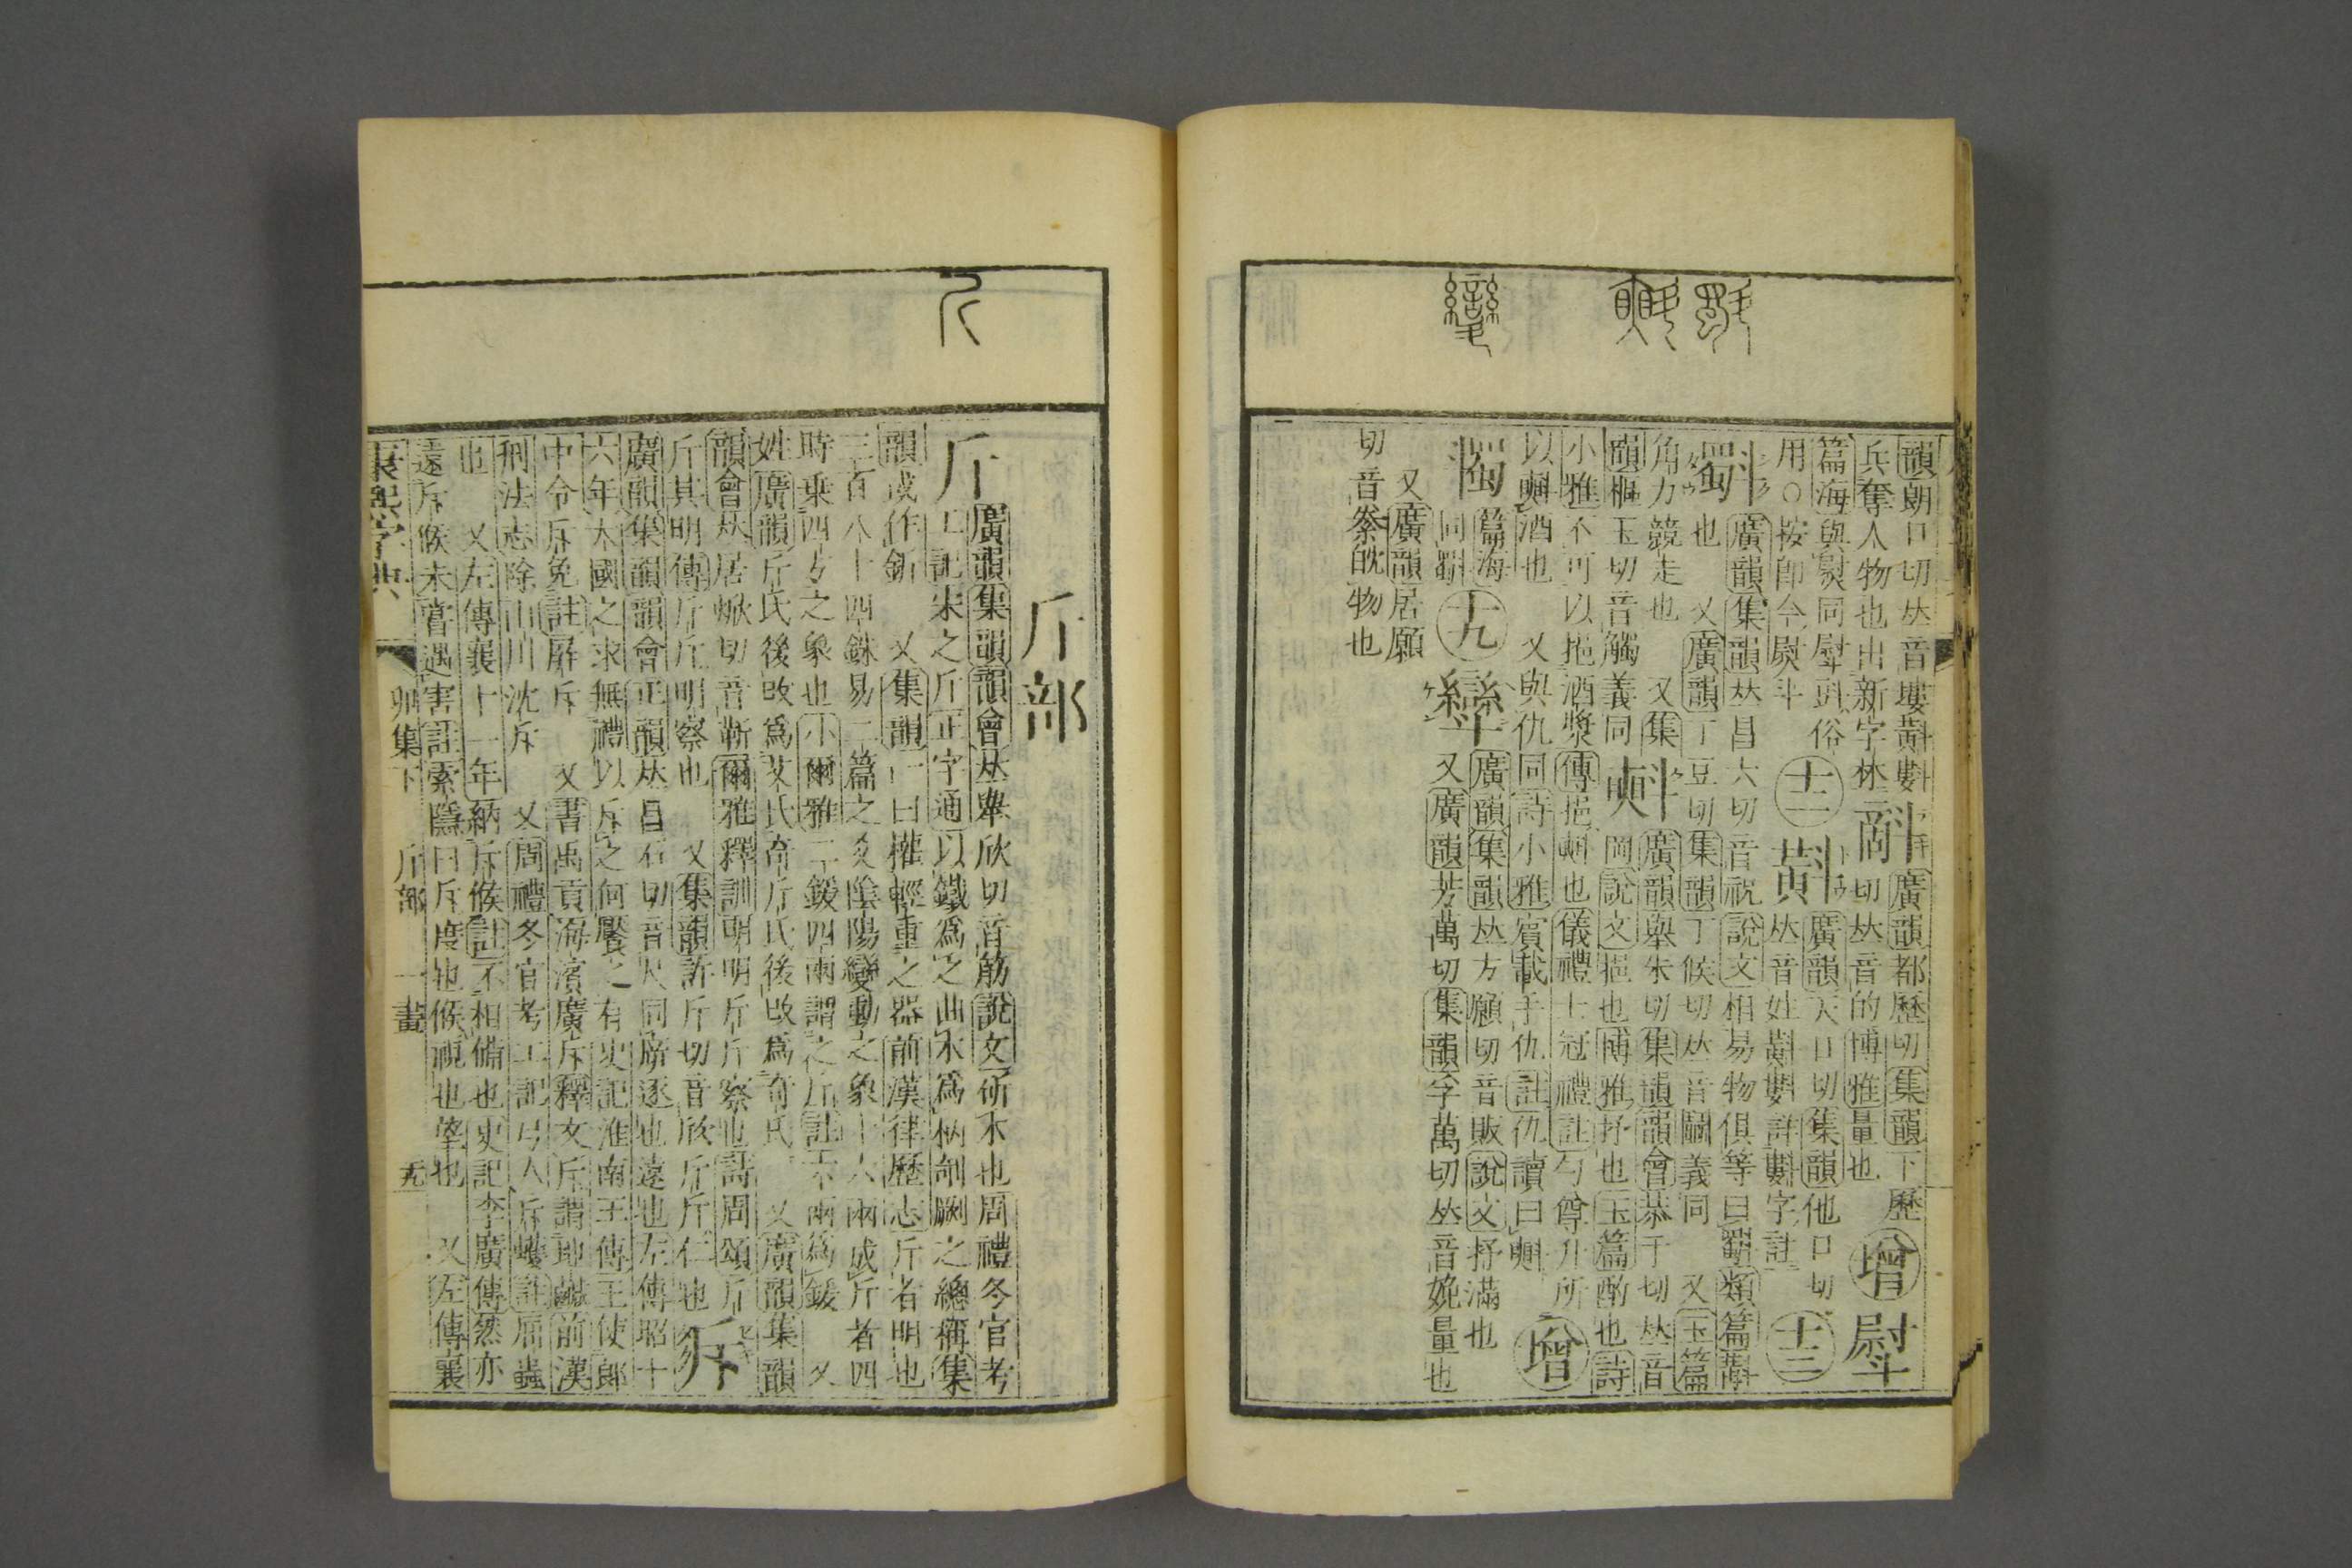 韻朗口切𠀤音塿黈斢
兵奪人物也出新字林 㪷 切𠀤音的博雅量也 增 㷉
廣韻都歷切集韻下歷
篇海與㷉同㷉斗俗
用○按卽今熨斗
十二
斢
廣韻天口切集韻他口切
𠀤音姓黈斢註斢字註
十三
斣
廣韻集韻𠀤昌六切音柷說文相易物俱等曰斣類篇斠
也 又廣韻丁豆切集韻丁候切𠀤音鬭義同 又玉篇
角力競走也 又集
韻樞玉切音觸義同
㪺
廣韻舉朱切集韻韻會恭于切𠀤音
㪺說文挹也博雅抒也玉篇酌也詩
小雅不可以挹酒漿傳挹㪺也儀禮士冠禮註勺尊升所
以㪺酒也 又與仇同詩小雅賓載手仇註仇讀曰㪺 增
篇海
同斣
十九
㪻
廣韻集韻𠀤方願切音販說文抒滿也
又廣韻芳萬切集韻孚萬切𠀤音娩量也
又廣韻居願
切音𢍏㪻物也
斤部
斤
廣韻集韻韻會𠀤舉欣切音筋說文斫木也周禮冬官考
工記宋之斤正字通以鐵爲之曲木爲柄剞劂之總稱集
韻或作釿 又集韻一曰權輕重之器前漢律歷志斤者明也
三百八十四銖易二篇之爻陰陽變動之象十六兩成斤者四
時乗四方之象也小爾雅二鍰四兩謂之斤註六兩爲鍰 又
姓廣韻斤氏後改爲艾氏奇斤氏後改爲奇氏 又廣韻集韻
韻會𠀤居焮切音靳爾雅釋訓明明斤斤察也詩周頌斤
斤其明傳斤斤明察也 又集韻許斤切音欣斤斤仁也 斥
廣韻集韻韻會正韻𠀤昌石切音尺同㡿逐也遠也左傳昭十
六年大國之求無禮以斥之何饜之有史記淮南王傳王使郎
中令斥免註屏斥 又書禹貢海濱廣斥釋文斥謂地鹹前漢
刑法志除山川沈斥 又周禮冬官考工記弓人斥蠖註屈蟲
也 又左傳襄十一年納斥候註不相備也史記李廣傳然亦
遠斥候未嘗遇害註索隱曰斥度也候視也望也 又左傳襄
康熙字典 卯集下 斤部 一畫 五